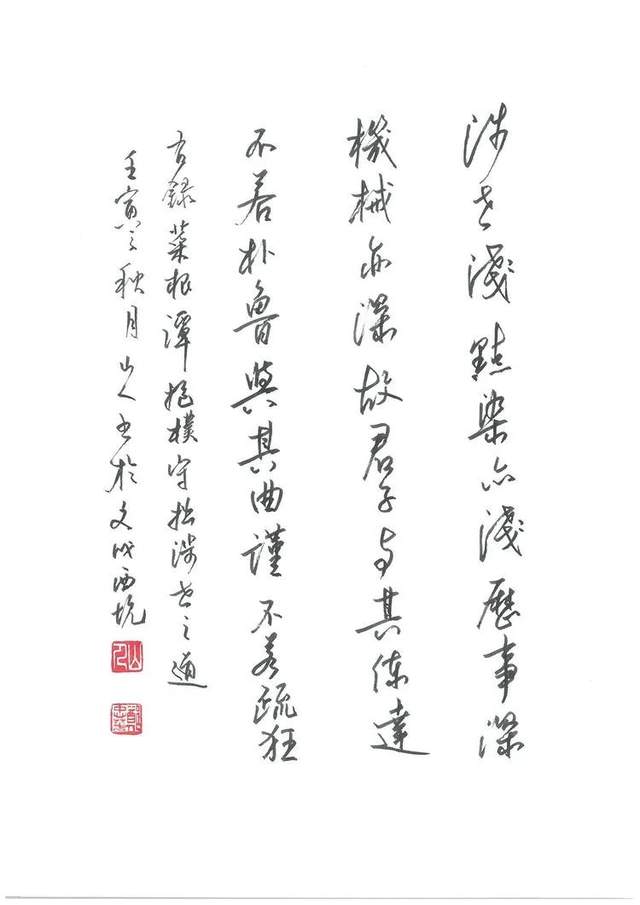 涉世淺點染亦淺歷事深
機械亦深故君子與其練達
不若朴魯與其曲謹不若疏狂
右錄菜根譚抱樸守拙涉世之道
壬寅之秋月山人書於文成西坑
山人